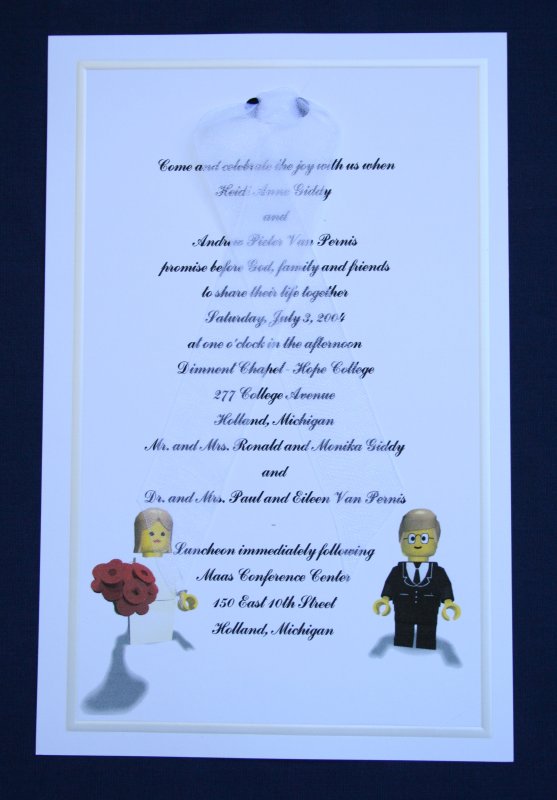 Come and celebrate the joy with us when
Heidi Anne Giddy
and
Andrew Pieter Van Pernis
promise before God, family and friends
to share their life together
Saturday, July 3, 2004
at one o'clock in the afternoon
Dimnent Chapel - Hope College
277 College Avenue
Holland, Michigan
Mr. and Mrs. Ronald and Monika Giddy
and
Dr. and Mrs. Paul and Eileen Van Pernis
Luncheon immediately following
Maas Conference Center
150 East 10th Street
Holland, Michigan